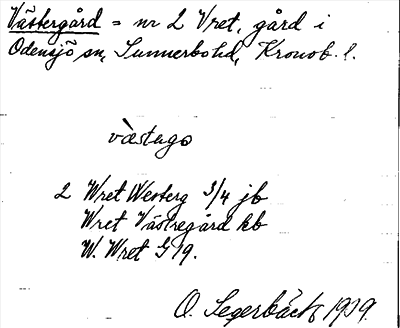 Västergård = nr 2 Vret, gård i
Odensjö sn, Sunnerbohd, Kronob. l.
västago
2 Wret Westerg 3/4 jb
Wret Västregård kb
W. Wret G 19.
O. Segerbäck 1939.